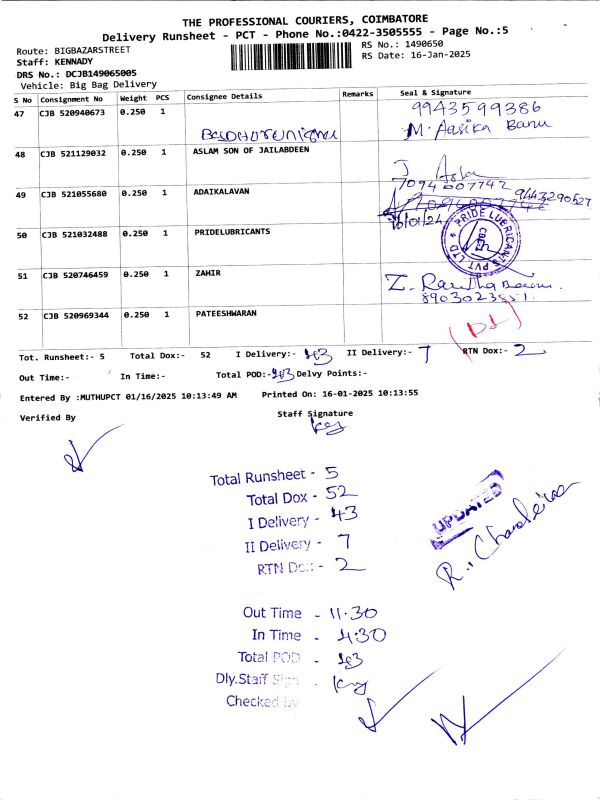 THE PROFESSIONAL COURIERS, COIMBATORE
Delivery Runsheet - PCT - Phone No.:0422-3505555 - Page No.:5
Route: BIGBAZARSTREET
RS No.: 1490650
Staff: KENNADY
RS Date: 16-Jan-2025
DRS No.: DCJB149065005
Vehicle: Big Bag Delivery
S No Consignment No Weight PCS Consignee Details Remarks Seal & Signature
47 CJB 520940673 0.250 1 9943599386
M. Aasika Banu
48 CJB 521129032 0.250 1 ASLAM SON OF JAILABDEEN
7094007742
49 CJB 521055680 0.250 1 ADAIKALAVAN 9443290527
50 CJB 521032488 0.250 1 PRIDELUBRICANTS PRIDE LUBRICANTS PVT LTD
51 CJB 520746459 0.250 1 ZAHIR
8903023851.
52 CJB 520969344 0.250 1 PATEESHWARAN
Tot. Runsheet:- 5 Total Dox:- 52 I Delivery:- 43 II Delivery:- 7 RTN Dox:- 2
Out Time:- In Time:- Total POD:- 43 Delvy Points:-
Entered By :MUTHUPCT 01/16/2025 10:13:49 AM Printed On: 16-01-2025 10:13:55
Verified By Staff Signature
Total Runsheet - 5
Total Dox - 52
I Delivery - 43
II Delivery - 7
RTN Dox - 2
UPDATED
Out Time - 11.30
In Time - 4:30
Total POD - 43
Dly.Staff Sign -
Checked by